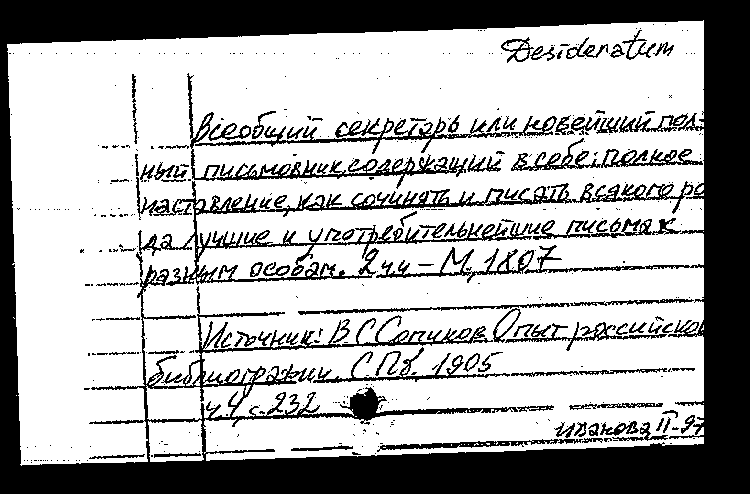 Desideratum
Всеобщий секретарь или новейший пол-
ный письмовник, содержащий в себе: полное
наставление, как сочинять и писать всякого ро
да лучшие и употребительнейшие письма к
разным особам. 2 чч – М, 1807
Источник: В С Сопиков. Опыт российской
библиографии. СПб. 1905
ч.4, с.232
Иванова II-97